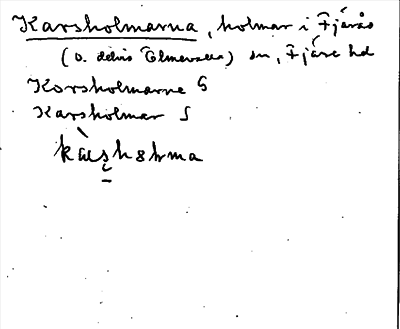 Karsholmarna, holmar i Fjärås
(o. delvis Ölmevalla) sn, Fjäre hd
Korsholmarne G
Karsholmar S